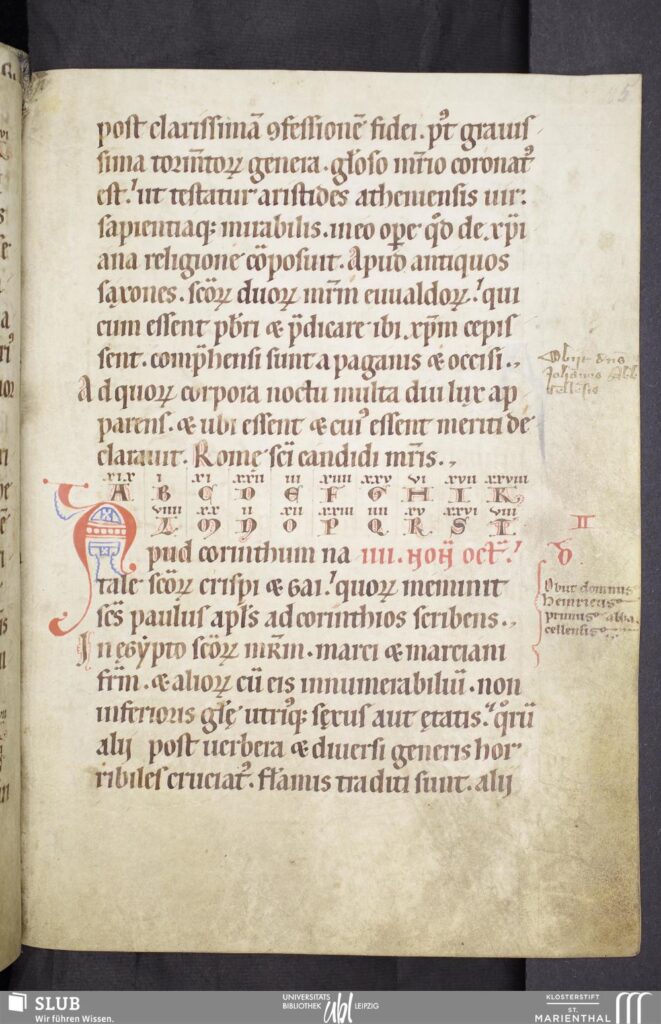 post clarissimā ꝯfessionē fidei. pꝰt grauis
sima tormtoꝝ genera. glōso mr̄io coronatꝰ
est. ut testatur aristides atheniensis uir.
sapientiaqꝫ mirabilis. in eo oꝑe qd̄ de xp̄i
ana religione cōposuit. Apud antiquos
saxones. scōꝝ duoꝝ mr̄m euualdoꝝ. qui
cum essent pb̄ri & p̄dicare ibi xp̄m cepis
sent. comp̄hensi sunt a paganis & occisi.,
Ad quoꝝ corpora noctu multa diu lux ap
parens. & ubi essent & cuiꝰ essent meriti de
clarauit. Rome sc̄i candidi mr̄is.,
xix i xi xxii iii xiiii xxv vi xvii xxviii
A B C D E F G H I K
viiii xx ii xii xxiii iiii xv xxvi viii
L M N O P Q R S T
Apud corinthum na iiii. Noṉ Oct̄.
tale scōꝝ crispi & Gai. quoꝝ meminit
sc̄s paulus apl̄s ad corinthios scribens.,
In egẏpto scōꝝ mr̄m. marci & marciani
fr̄m. & alioꝝ cū eis innumerabiliū. non
inferioris glę utriqꝫ sexus aut ętatis. qꝛū
alij post uerbera & diuersi generis hor
ribiles cruciatꝰ. flāmis traditi sunt. alij
Obijt dn̄s
Johannes Abb
cellēsis
II
b.
Obiit domnus
Heinricus
primus abba
cellensis
5
SLUB
Wir führen Wissen.
UNIVERSITÄTS
BIBLIOTHEK ubl LEIPZIG
KLOSTERSTIFT
ST.
MARIENTHAL